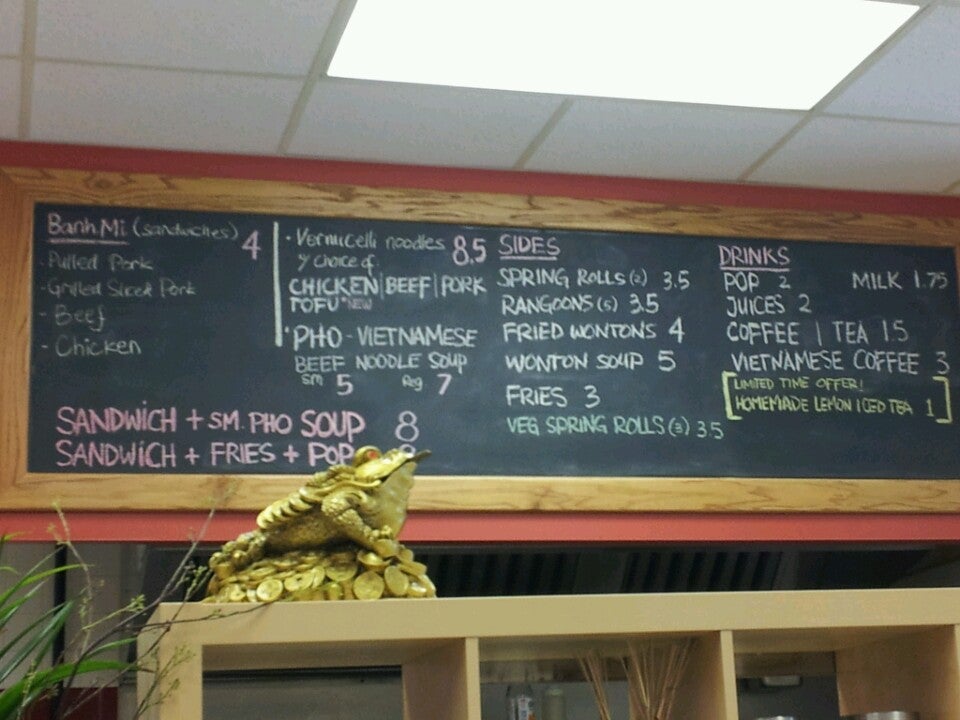 Banh Mi (sandwiches) 4
- Pulled Pork
- Grilled Sliced Pork
- Beef
- Chicken
· Vermicelli noodles 8.5
y choice of
CHICKEN | BEEF | PORK
TOFU *NEW
· PHO - VIETNAMESE
BEEF NOODLE SOUP
sm 5 Reg 7
SANDWICH + SM. PHO SOUP 8
SANDWICH + FRIES + POP
SIDES
SPRING ROLLS (2) 3.5
RANGOONS (5) 3.5
FRIED WONTONS 4
WONTON SOUP 5
FRIES 3
VEG SPRING ROLLS (3) 3.5
DRINKS
POP 2 MILK 1.75
JUICES 2
COFFEE | TEA 1.5
VIETNAMESE COFFEE 3
LIMITED TIME OFFER!
HOMEMADE LEMON ICED TEA 1